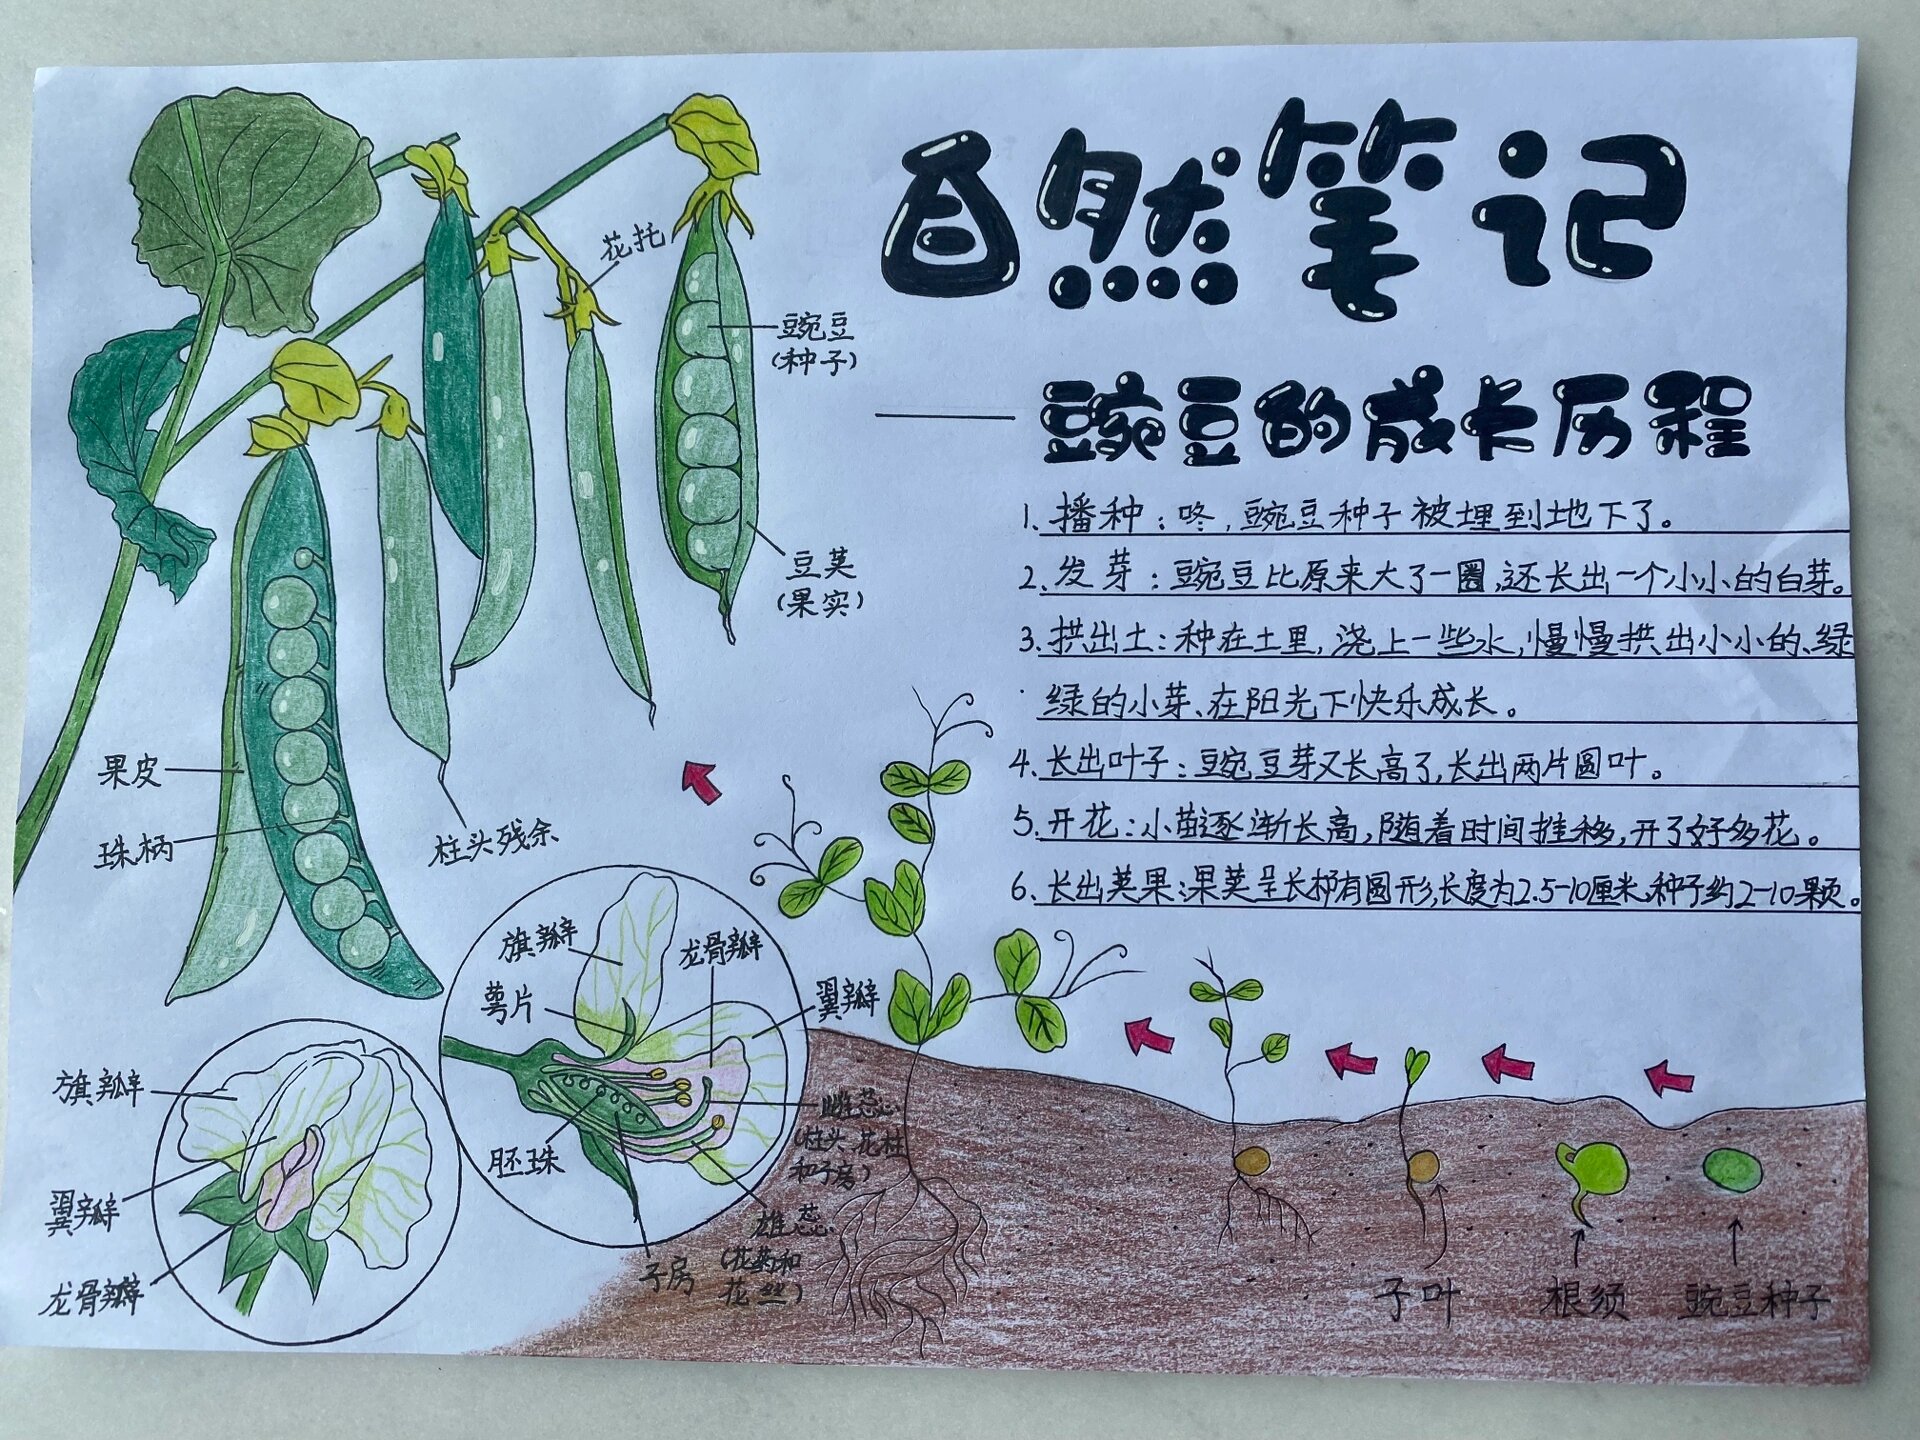 自然笔记
——豌豆的成长历程
1. 播种：咚，豌豆种子被埋到地下了。
2. 发芽：豌豆比原来大了一圈，还长出一个小小的白芽。
3. 拱出土：种在土里，浇上一些水，慢慢拱出小小的、绿
绿的小芽、在阳光下快乐成长。
4. 长出叶子：豌豆芽又长高了，长出两片圆叶。
5. 开花：小苗逐渐长高，随着时间推移，开了好多花。
6. 长出荚果：果荚呈长椭圆形，长度为2.5-10厘米，种子约2-10颗。
花托
豌豆
(种子)
豆荚
(果实)
果皮
珠柄
柱头残余
旗瓣
龙骨瓣
萼片
翼瓣
胚珠
雌蕊
(柱头、花柱
和子房)
雄蕊
(花药和
花丝)
子房
旗瓣
翼瓣
龙骨瓣
子叶
根须
豌豆种子